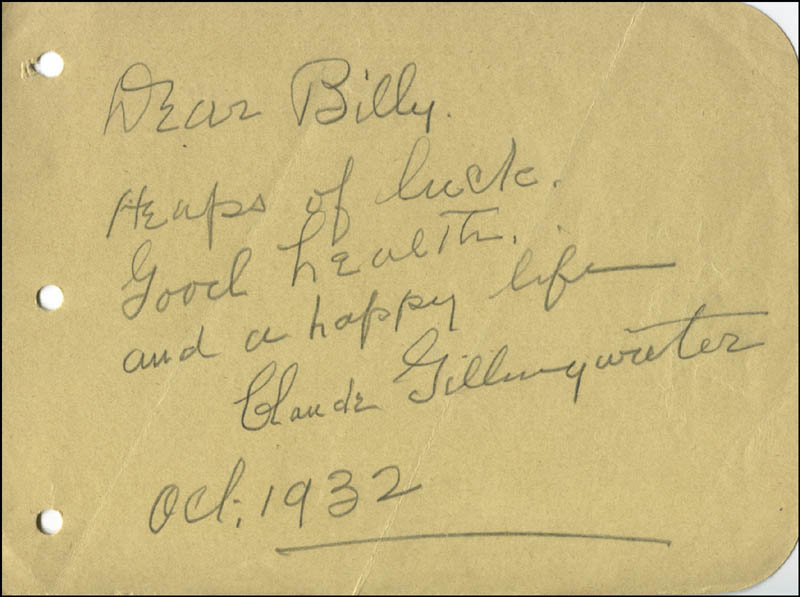 Dear Billy.
Heaps of luck.
Good health.
and a happy life
Claude Gillingwater
Oct. 1932